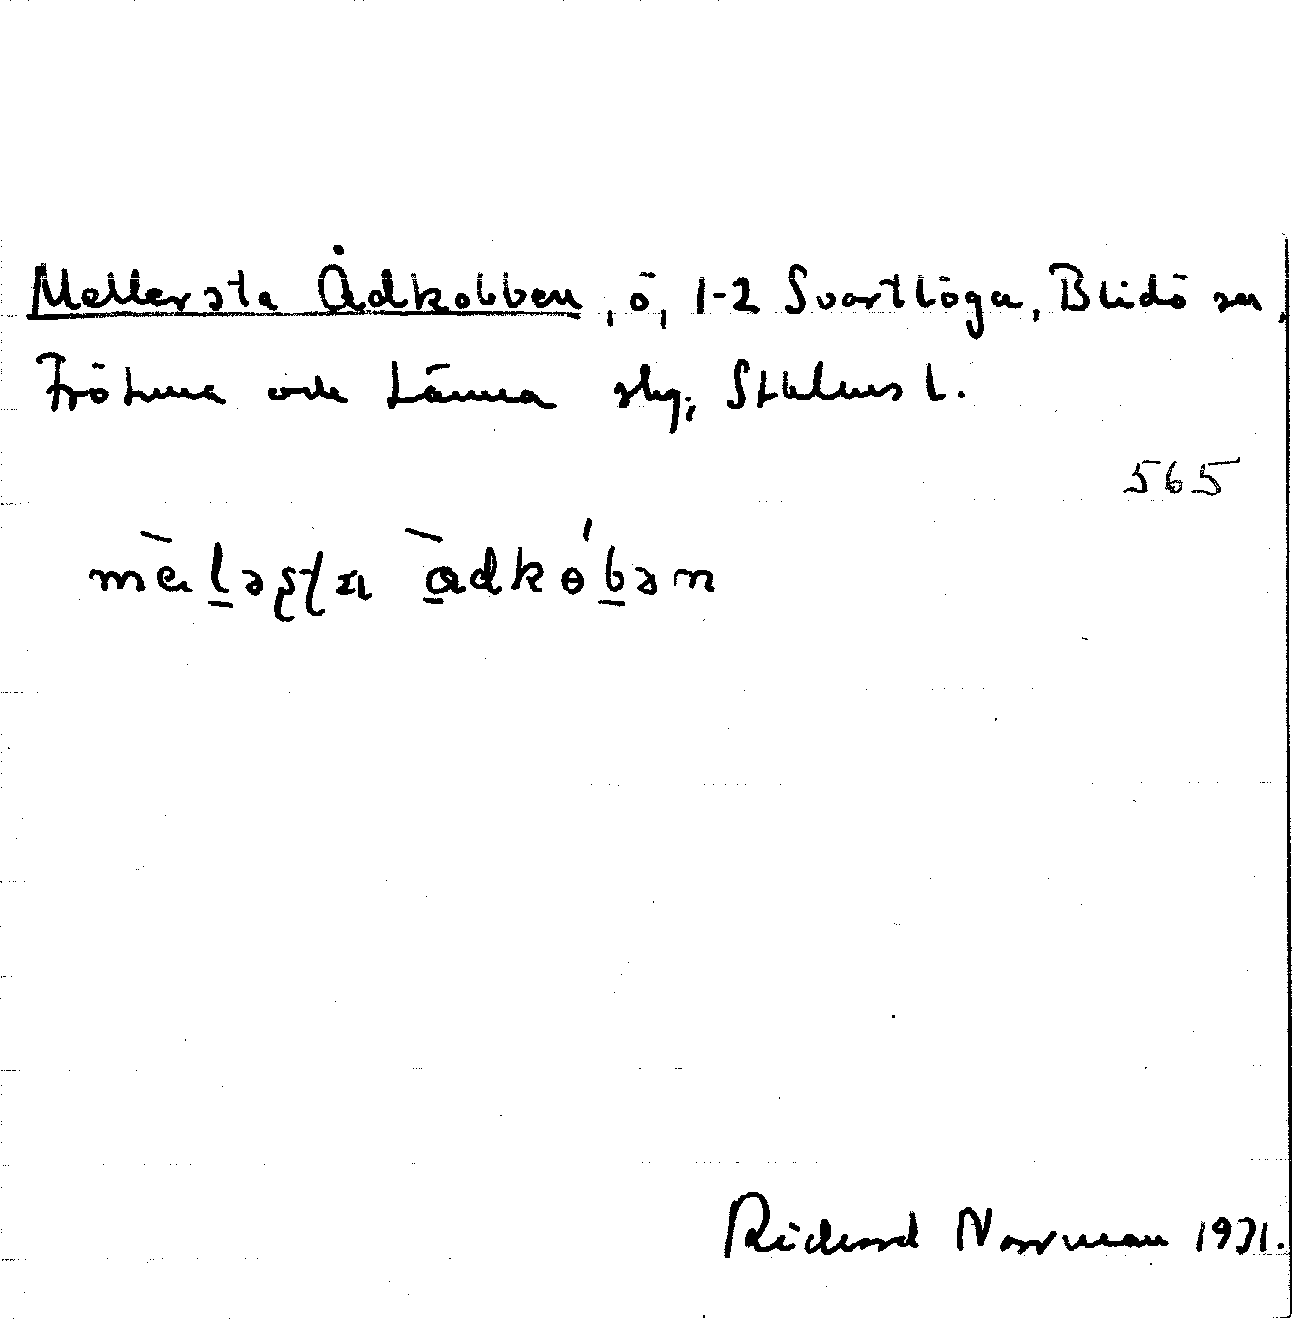 Mellersta Ådkobben, ö, 1-2 Svartlöga, Blidö sn,
Frötuna och Länna skg, Sthlms l.
565
Rickard Norrman 1931.